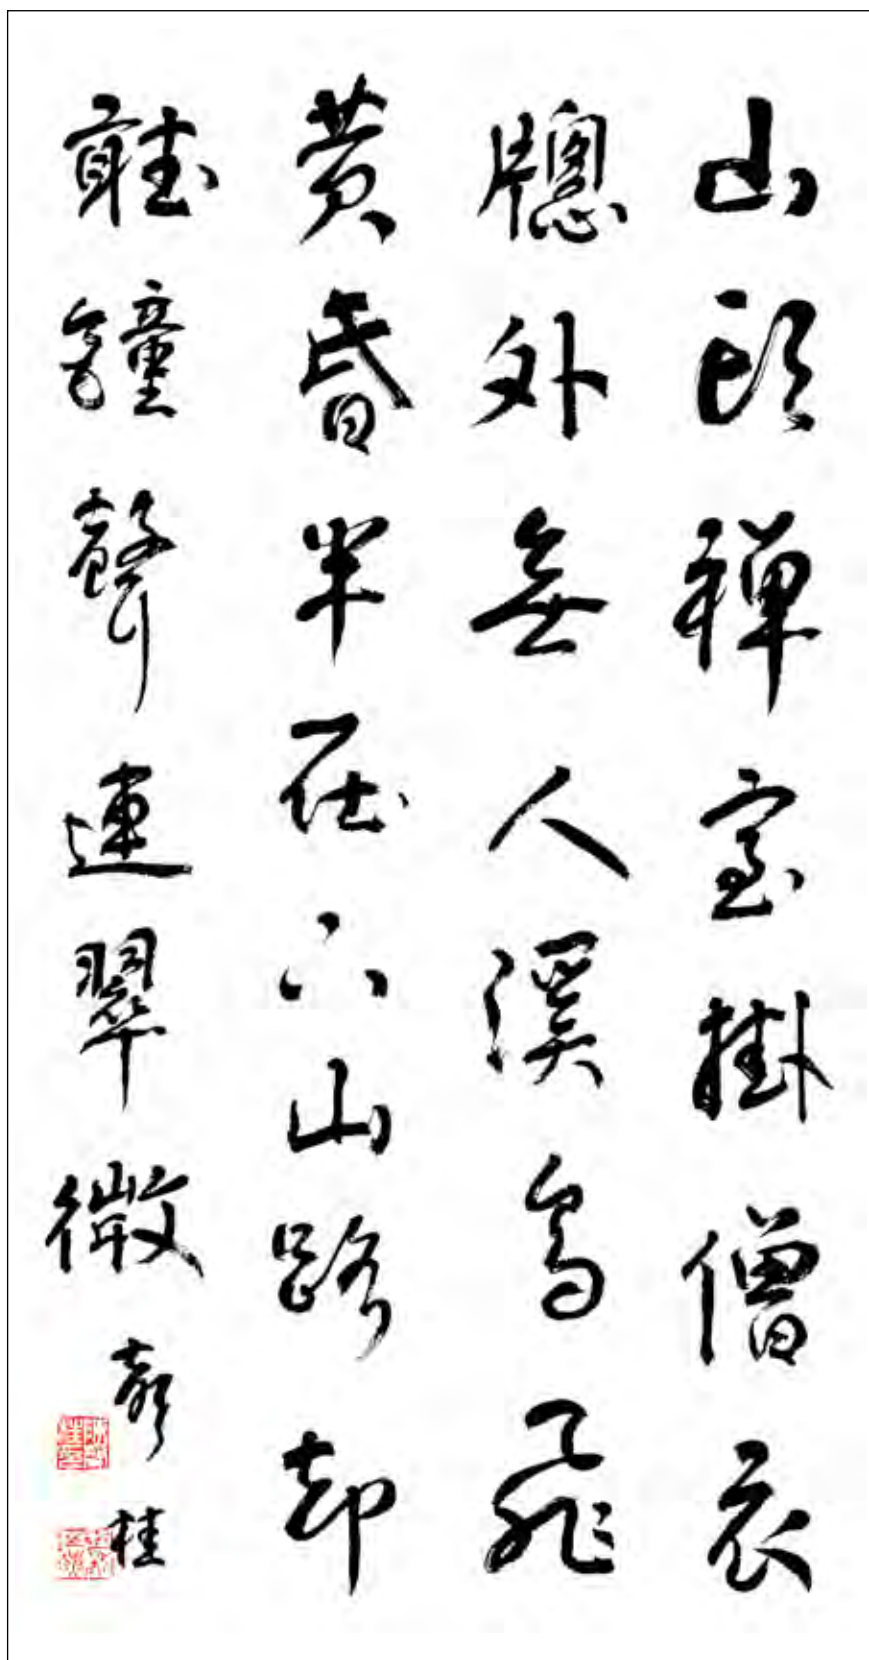 山頭禅室掛僧衣
牕外無人溪鳥飛
黄昏半在下山路却
聴鐘聲連翠微
桂